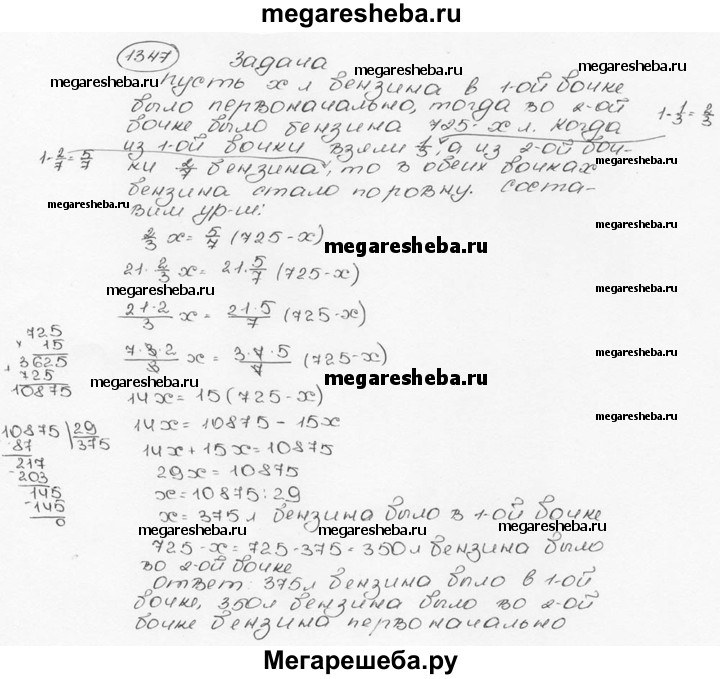 megaresheba.ru
1347 Задача
Пусть x л бензина в 1-ой бочке
было первоначально, тогда во 2-ой
бочке было бензина 725-x л. Когда
из 1-ой бочки взяли 1/3, а из 2-ой боч-
ки 2/7 бензина, то в обеих бочках
бензина стало поровну. Соста-
вим ур-ие:
1-1/3=2/3
1-2/7=5/7
megaresheba.ru
megaresheba.ru
megaresheba.ru
2/3 x = 5/7 (725-x)
megaresheba.ru
megaresheba.ru
21·2/3 x = 21·5/7 (725-x)
megaresheba.ru
21·2/3 x = 21·5/7 (725-x)
7·3·2/3 x = 3·7·5/7 (725-x)
megaresheba.ru
megaresheba.ru
megaresheba.ru
14x = 15(725-x)
14x = 10875 - 15x
megaresheba.ru
14x + 15x = 10875
29x = 10875
x = 10875 : 29
x = 375 л бензина было в 1-ой бочке
megaresheba.ru
megaresheba.ru
megaresheba.ru
725-x = 725-375 = 350 л бензина было
во 2-ой бочке
Ответ: 375 л бензина было в 1-ой
бочке, 350 л бензина было во 2-ой
бочке бензина первоначально
725
× 15
+ 3625
725
10875
10875 | 29
- 87 375
217
- 203
145
- 145
0
megaresheba.ru
megaresheba.ru
Мегарешеба.ру